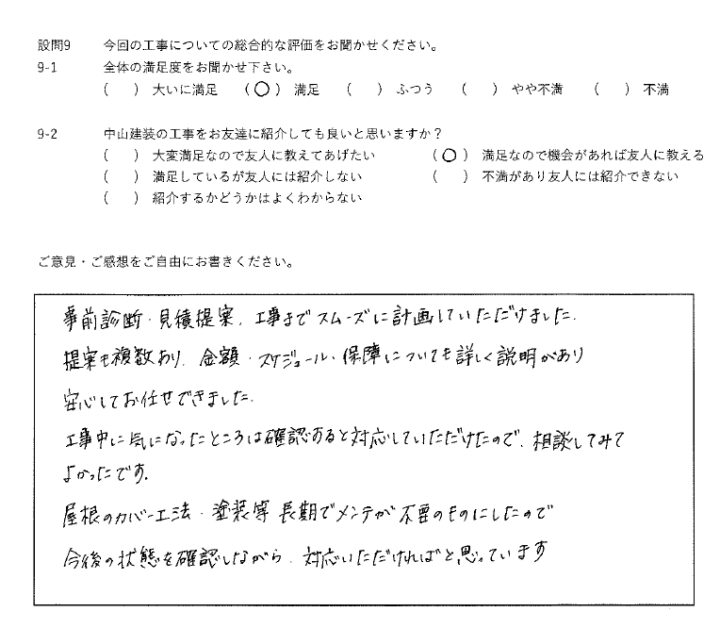 設問9 今回の工事についての総合的な評価をお聞かせください。
9-1 全体の満足度をお聞かせ下さい。
( ) 大いに満足 (○) 満足 ( ) ふつう ( ) やや不満 ( ) 不満
9-2 中山建装の工事をお友達に紹介しても良いと思いますか？
( ) 大変満足なので友人に教えてあげたい (○) 満足なので機会があれば友人に教える
( ) 満足しているが友人には紹介しない ( ) 不満があり友人には紹介できない
( ) 紹介するかどうかはよくわからない
ご意見・ご感想をご自由にお書きください。
事前診断・見積提案、工事までスムーズに計画していただけました。
提案も複数あり、金額・スケジュール・保障についても詳しく説明があり
安心してお任せできました。
工事中に気になったところは確認あると対応していただけたので、相談してみて
よかったです。
屋根のカバー工法・塗装等長期でメンテが不要のものにしたので
今後の状態を確認しながら、対応いただければと思っています